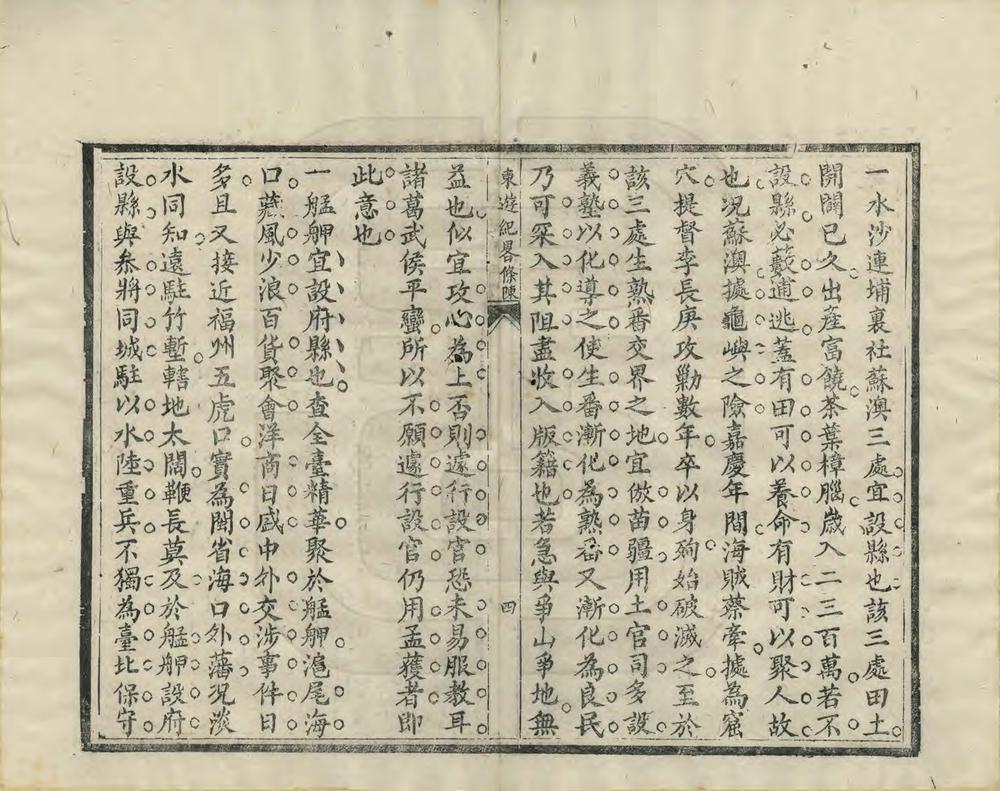 一水沙連埔裏社蘇澳三處宜設縣也該三處田土
開闢已久出產富饒茶葉樟腦歲入二三百萬若不
設縣必藪逋逃蓋有田可以養命有財可以聚人故
也況蘇澳據龜嶼之險嘉慶年間海賊蔡牽據為窟
穴提督李長庚攻勦數年卒以身殉始破滅之至於
該三處生熟番交界之地宜倣苗疆用土官司多設
義塾以化導之使生番漸化為熟番又漸化為良民
乃可采入其阻盡收入版籍也若急與爭山爭地無
東遊紀畧條陳 四
益也似宜攻心為上否則遽行設官恐未易服教耳
諸葛武侯平蠻所以不願遽行設官仍用孟獲者即
此意也
一艋舺宜設府縣也查全臺精華聚於艋舺滬尾海
口藏風少浪百貨聚會洋商日盛中外交涉事件日
多且又接近福州五虎口實為閩省海口外藩況淡
水同知遠駐竹塹轄地太闊鞭長莫及於艋舺設府
設縣與叅將同城駐以水陸重兵不獨為臺北保守